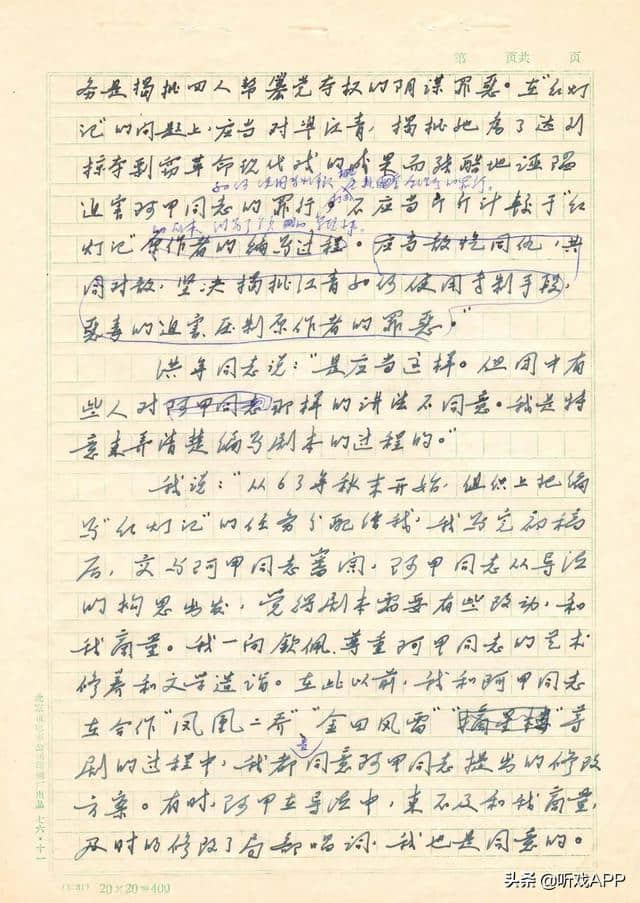 第 页共 页
务是揭批四人帮篡党夺权的阴谋罪恶。在“红灯
记”的问题上，应当对准江青，揭批她为了达到
掠夺到窃革命现代戏的成果而残酷地诬陷
迫害阿甲同志的罪行，不应当斤斤计较于“红
灯记”原作者的编写过程。应当敌忾同仇，共
同对敌，坚决揭批江青如何使用专制手段，
恶毒的迫害、压制原作者的罪恶。”
洪年同志说：“是应当这样。但团中有
些人对阿甲同志那样的讲法不同意。我是特
意来弄清楚编写剧本的过程的。”
我说：“从63年秋末开始，组织上把编
写“红灯记”的任务分配给我，我写完初稿
后，交与阿甲同志审阅，阿甲同志从导演
的构思出发，觉得剧本需要有些改动，和
我商量。我一向钦佩、尊重阿甲同志的艺术
修养和文学造诣。在此以前，我和阿甲同志
在合作“凤凰二乔”“金田风雷”“摘星楼”等
剧的过程中，我都是同意阿甲同志提出的修改
方案。有时，阿甲在导演中，来不及和我商量，
及时的修改了局部唱词，我也是同意的。
20×20=400
头条@听戏APP